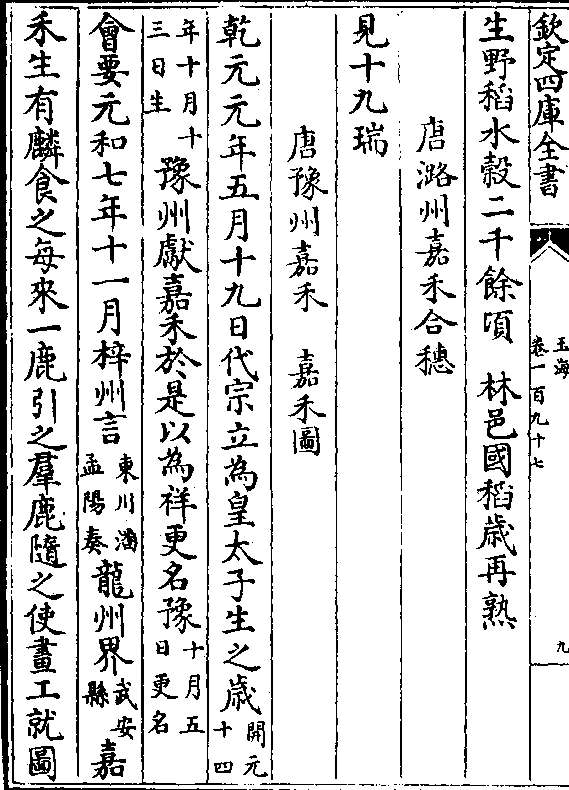 欽定四庫全書
玉海
卷一百九十七
九
生野稻水穀二千餘頃　林邑國稻歲再熟
唐潞州嘉禾合穗
見十九瑞
唐豫州嘉禾　嘉禾圖
乾元元年五月十九日代宗立為皇太子生之歲開元十四
年十月十三日生豫州獻嘉禾於是以為祥更名豫十月五日更名
會要元和七年十一月梓州言東川潘孟陽奏龍州界武安縣嘉
禾生有麟食之每來一鹿引之羣鹿隨之使畫工就圖